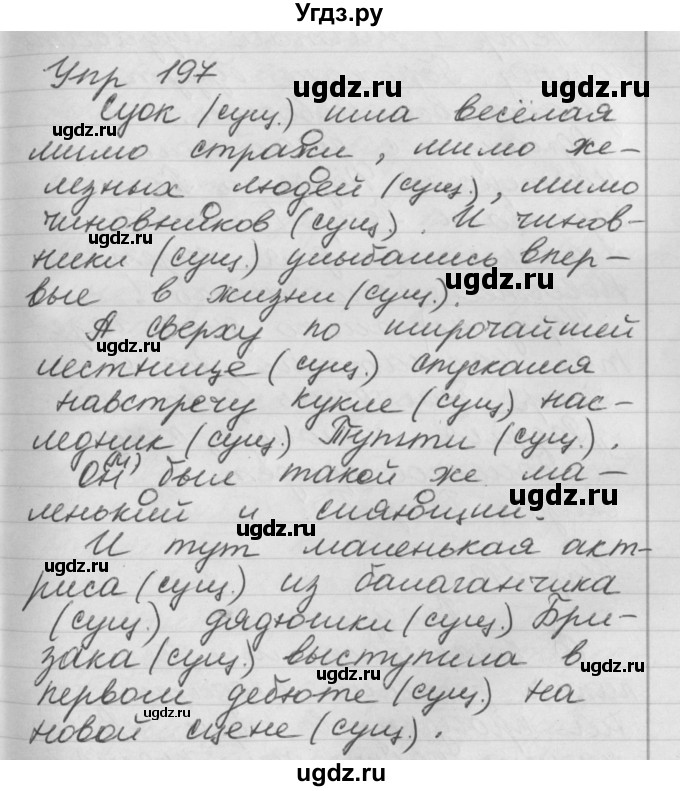 Угдз.ру
Упр 197
ugdz.ru
ugdz.ru
Суок (сущ.) шла весёлая
ugdz.ru
мимо стражи, мимо же-
лезных людей (сущ.), мимо
чиновников (сущ.). И чинов-
ugdz.ru
ники (сущ.) улыбались впер-
ugdz.ru
вые в жизни (сущ.).
А сверху по широчайшей
ugdz.ru
лестнице (сущ.) спускался
навстречу кукле (сущ) нас-
ugdz.ru
ледник (сущ.) Тутти (сущ.).
ugdz.ru
Он (м) был такой же ма-
ленький и сияющий.
ugdz.ru
И тут маленькая акт-
ugdz.ru
риса (сущ.) из балаганчика
(сущ.) дядюшки (сущ.) Бри-
ugdz.ru
зака (сущ.) выступила в
ugdz.ru
первом дебюте (сущ.) на
ugdz.ru
новой сцене (сущ.).
ugdz.ru